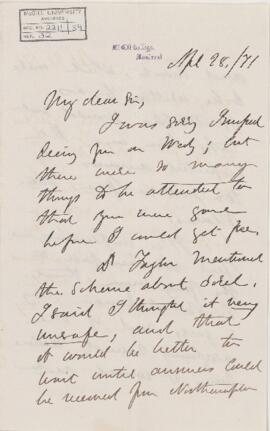 McGILL UNIVERSITY
ARCHIVES
ACC. NO. 2211/54
REF. 32
McGill College,
Montreal
Apl 28/71
My dear Sir,
I was sorry I missed
seeing you on Wedy; but
there were so many
things to be attended to
that you were gone
before I could get free.
Dr Taylor mentioned
the scheme about Sorel.
I said I thought it very
unsafe; and that
it would be better to
wait until answers could
be received from Northampton